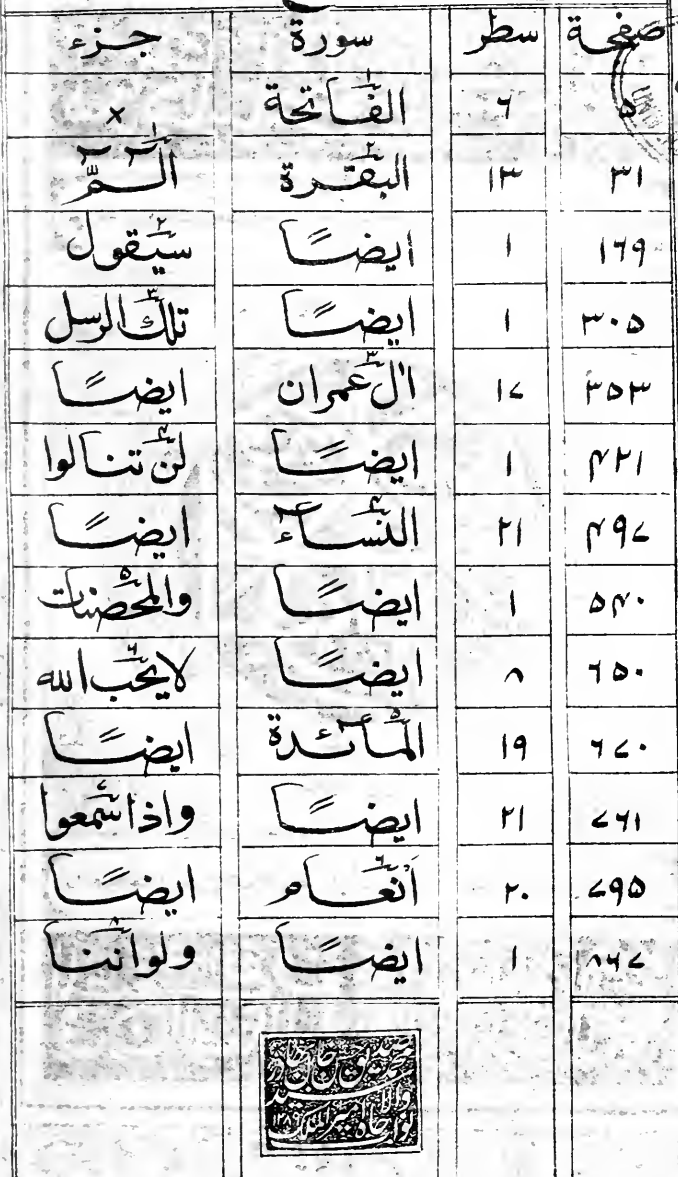 صفحة سطر سورة جزء
۵ ۶ الفاتحة ۱
۳۱ ۱۳ البقرة ۲ الٓمّٓ ۱ ×
۱۶۹ ۱ ايضًا سيقول ۲
۳۰۵ ۱ ايضًا تلك الرسل ۳
۳۵۳ ۱۷ اٰل عمران ۳ ايضًا
۴۲۱ ۱ ايضًا لن تنالوا ۴
۴۹۷ ۲۱ النسآء ۴ ايضًا
۵۴۰ ۱ ايضًا والمحصنات ۵
۶۵۰ ۸ ايضًا لا يحب الله ۶
۶۷۰ ۱۹ المآئدة ۵ ايضًا
۷۶۱ ۲۱ ايضًا واذا سمعوا ۷
۷۹۵ ۲۰ انعام ۶ ايضًا
۸۶۷ ۱ ايضًا ولو اننا ۸
نواب والاجاه امير الملك